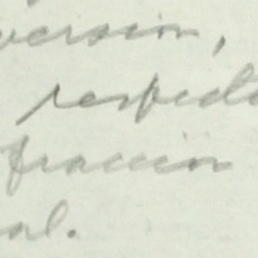 version,
respecto
fracción
al.